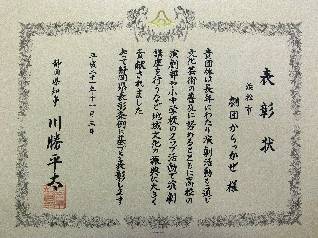 表彰状
浜松市
劇団からっかぜ 様
貴団体は長年にわたり演劇活動を通じ
文化芸術の普及に努めるとともに高校の
演劇部や小中学校のクラブ活動で演劇
講座を行うなど地域文化の振興に大きく
貢献されました
よって静岡県表彰条例に基づき表彰します
平成二十三年十一月三日
静岡県知事 川勝平太